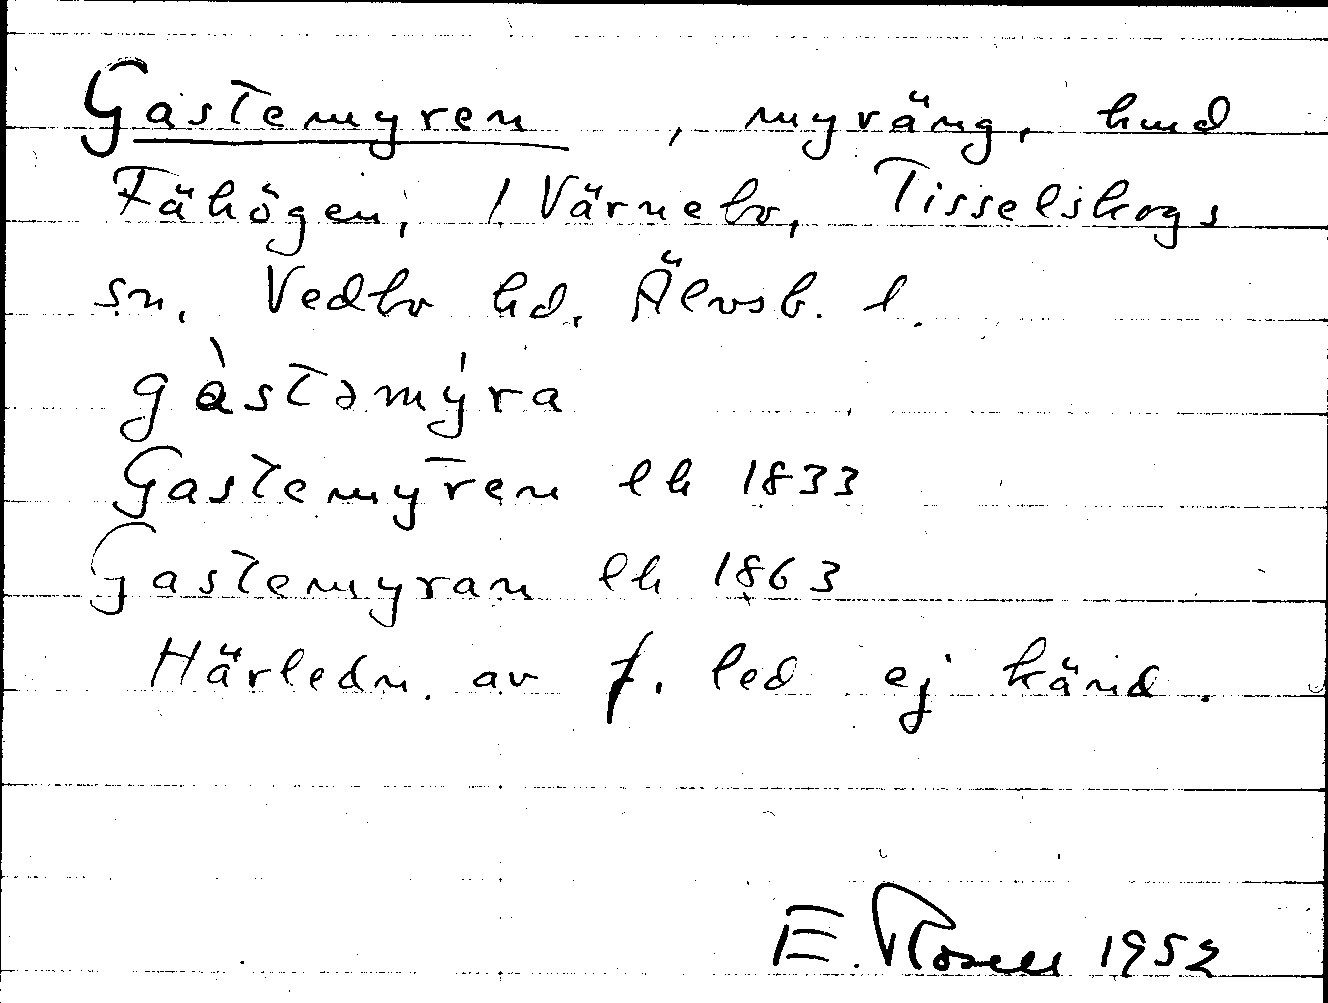 Gastemyren, myräng, hmd
Fähögen, 1 Värnebo, Tisselskogs
sn, Vedbo hd, Älvsb. l.
gàstəmýra
Gastemyren lh 1833
Gastemyran lh 1863
Härledn. av f. led ej känd.
E. Rosell 1952